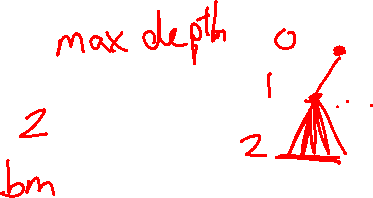 max depth 0
1
2 2
bm